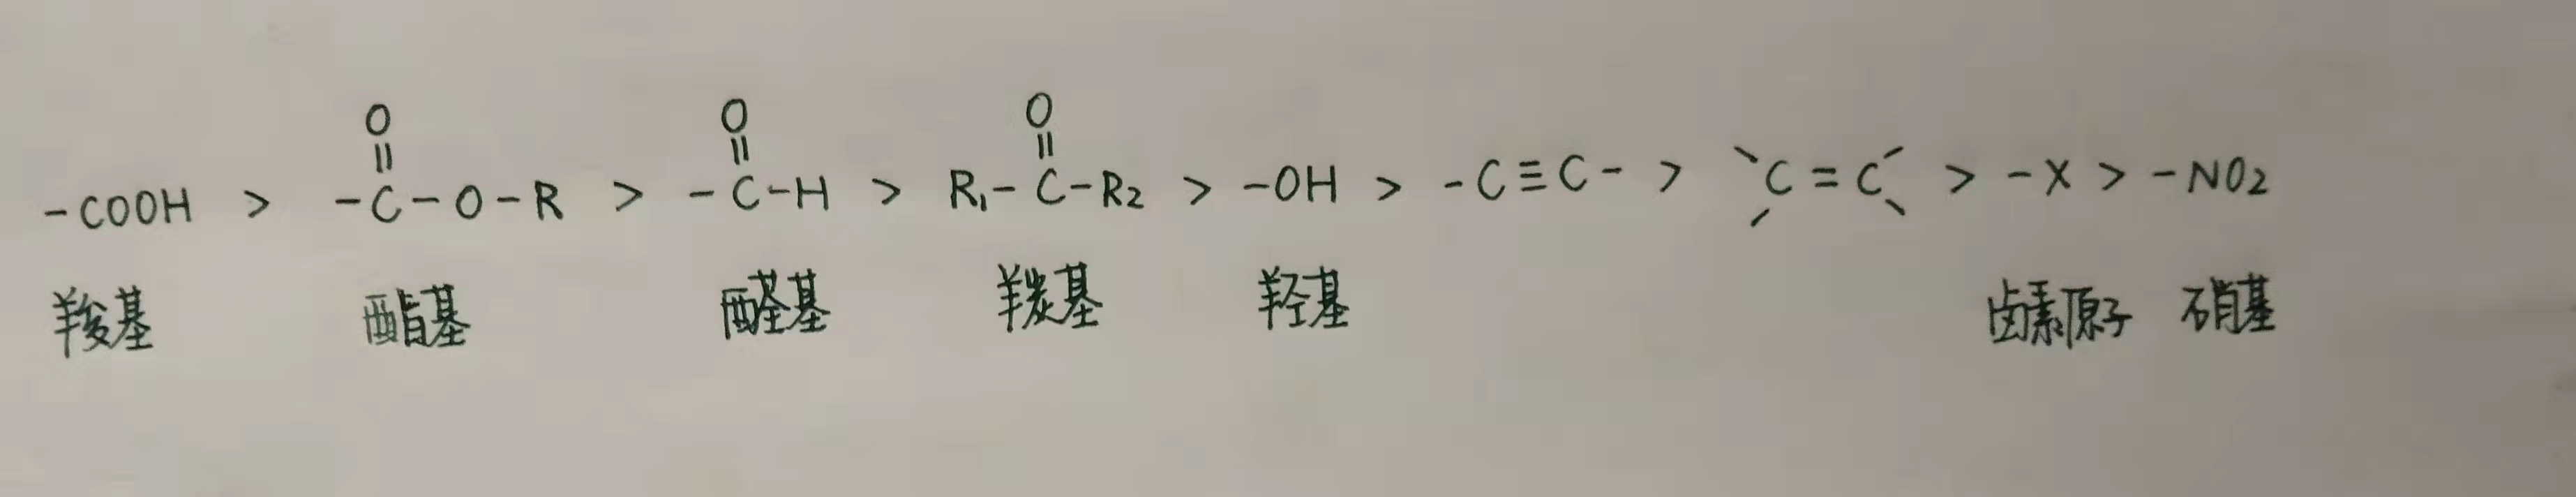 O O O
‖ ‖ ‖
-COOH > -C-O-R > -C-H > R₁-C-R₂ > -OH > -C≡C- > C=C > -X > -NO₂
羧基 酯基 醛基 羰基 羟基 卤素原子 硝基